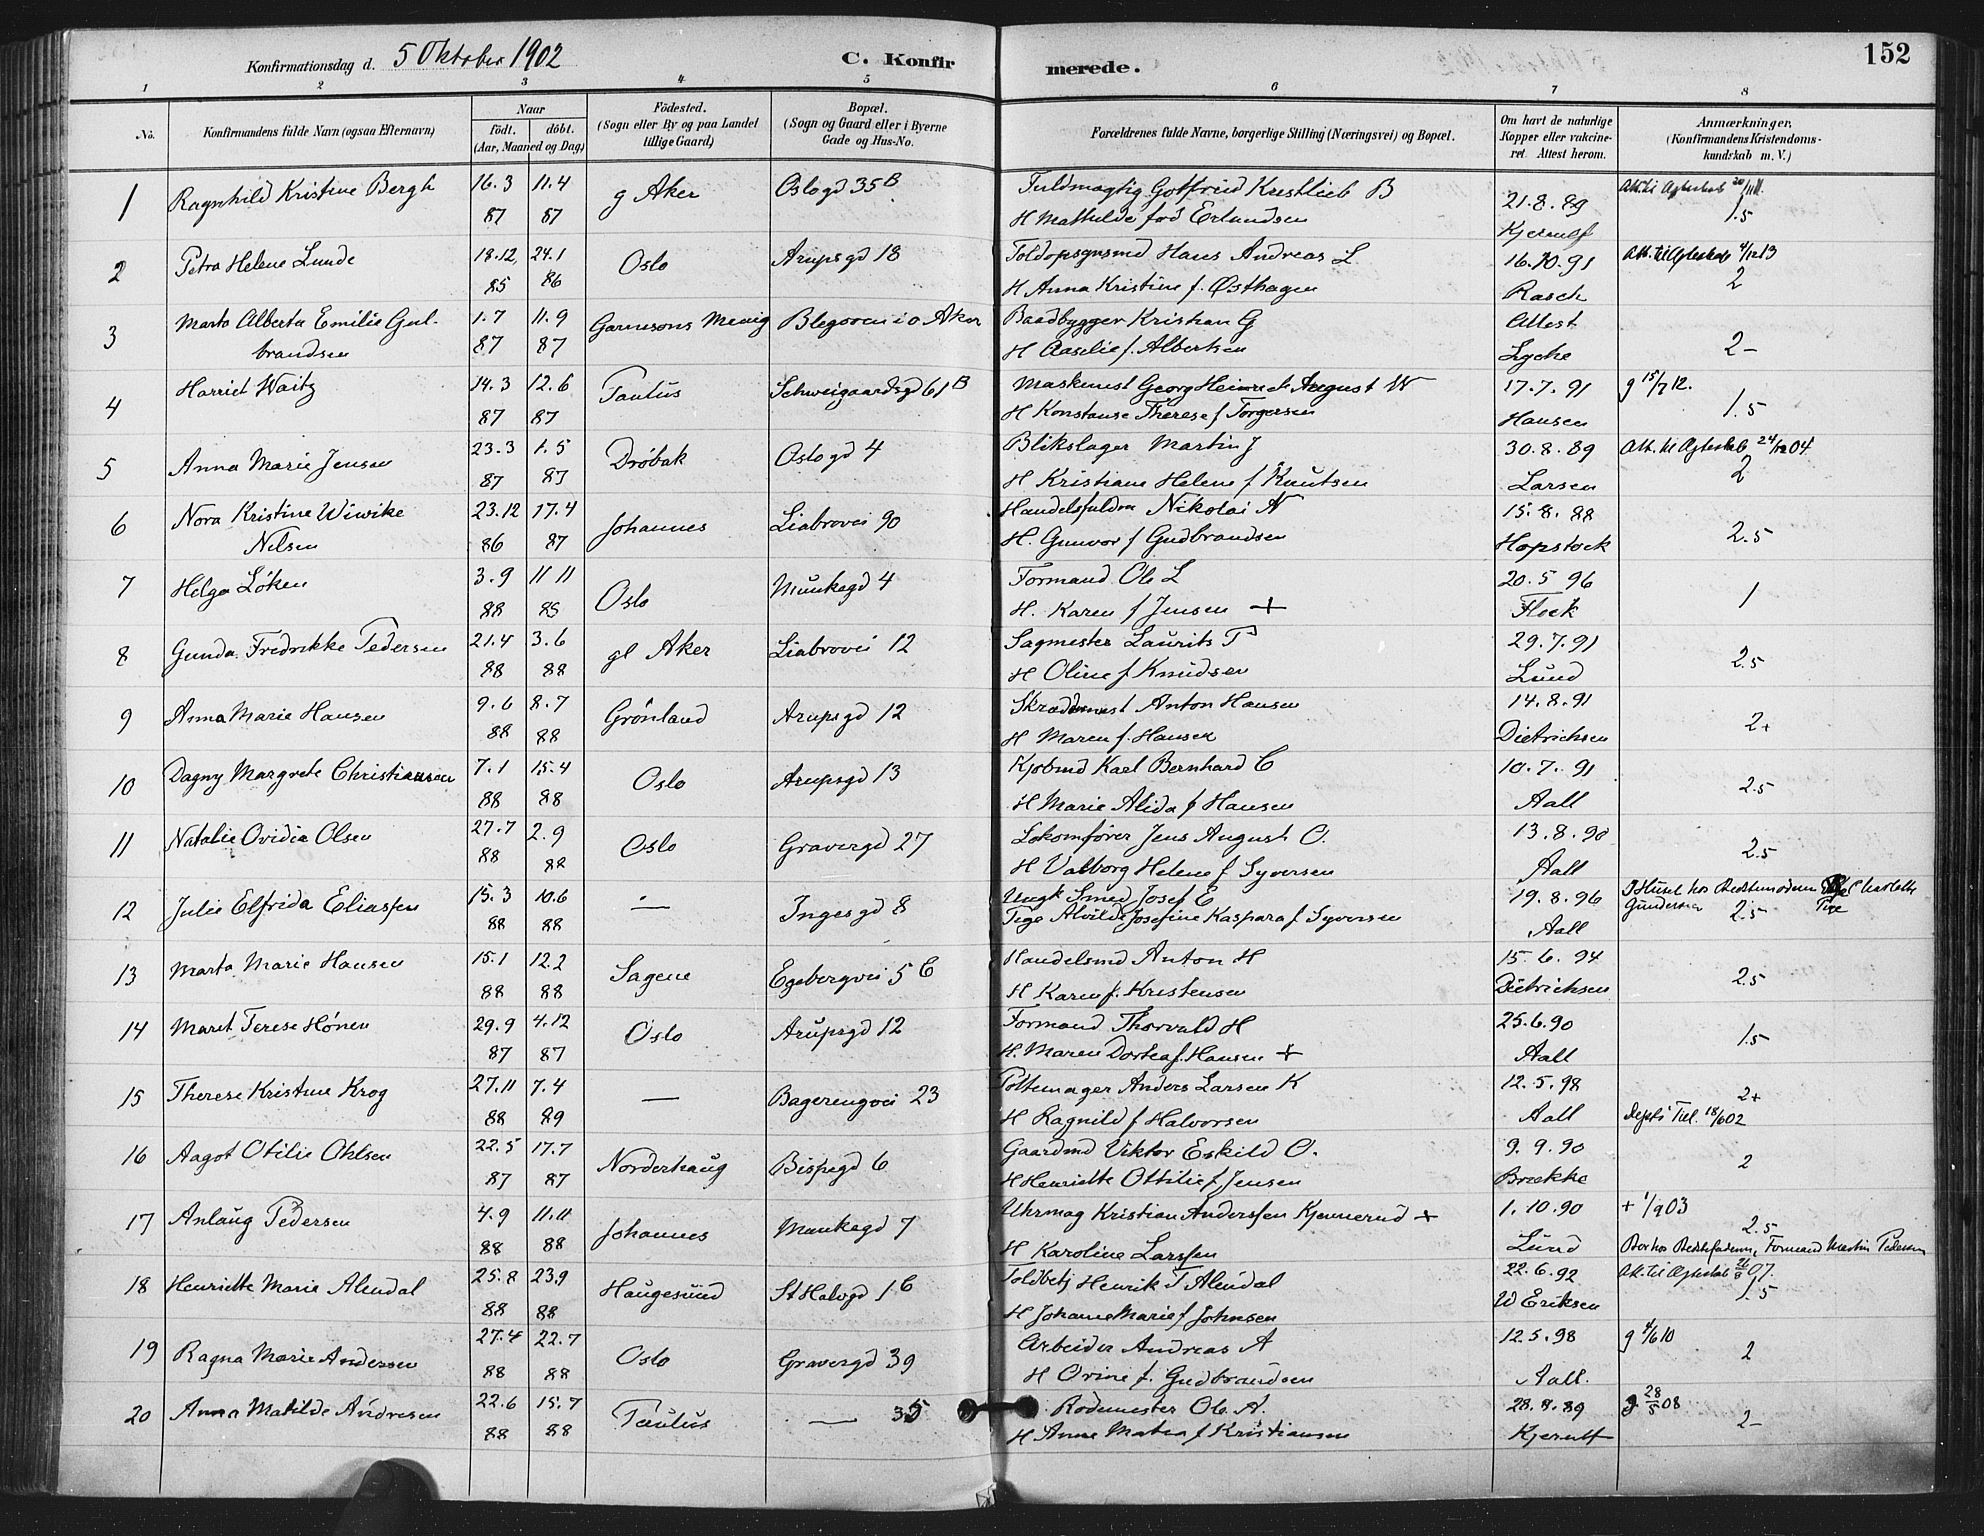 Konfirmationsdag d. 5 Oktober 1902 C. Konfir merede. 152
1 2 3 4 5 6 7 8
No. Konfirmandens fulde Navn (ogsaa Efternavn) Naar födt. döbt. (Aar, Maaned og Dag) Födested. (Sogn eller By og paa Landet tillige Gaard) Bopæl. (Sogn og Gaard eller i Byerne Gade og Hus-No. Forældrenes fulde Navne, borgerlige Stilling (Næringsvei) og Bopæl. Om havt de naturlige Kopper eller vakcineret. Attest herom. Anmærkninger. (Konfirmandens Kristendomskundskab m. V.)
1 Ragnhild Kristine Bergh 16.3 11.4 g Aker Oslogd 35B Fuldmægtig Gotfried Krestlieb B 21.8.89
87 87 H Mathilde fød Erlandsen Kjerulf 1.5
2 Petra Helene Lunde 18.12 24.1 Oslo Arupsgd 18 Toldopsynsmd Hans Andreas L 16.10.91 Att. til Ægteskab 4/12 13
85 86 H Anna Kristine f. Østhagen Rasch 2
3 Marta Alberta Emilie Gul- 1.7 11.9 Garnisons Menig Blegøren i o Aker Baadbygger Kristian G Attest
brandsen 87 87 H Aaselie f. Albertsen Lyche 2-
4 Harriet Waitz 14.3 12.6 Paulus Schweigaardsgd 61B Maskinist Georg Heinrich August W 17.7.91 g 15/7 12.
87 87 H Konstanse Therese f Torgersen Hansen 1.5
5 Anna Marie Jensen 23.3 1.5 Dröbak Oslogd 4 Blikslager Martin J 30.8.89 Att. til Ægteskab 24/12 04
87 87 H Kristiane Helene f Knutsen Larsen 2
6 Nora Kristine Wiwike 23.12 17.4 Johannes Liabrovei 90 Handelsfuldm Nikolai N 15.8.88
Nilsen 86 87 H. Gunvor f Gudbrandsen Hopstock 2.5
7 Helga Löken 3.9 11 11 Oslo Munkegd 4 Formand Ole L 20.5 96
88 88 H. Karen f Jensen + Flock 1
8 Gunda Fredrikke Pedersen 21.4 3.6 gl Aker Liabrovei 12 Sagmester Laurits P 29.7.91
88 88 H Oline f Knudsen Lund 2.5
9 Anna Marie Hansen 9.6 8.7 Grönland Arupsgd 12 Skræddermest Anton Hansen 14.8.91
88 88 H Maren f. Hansen Dietrichsen 2+
10 Dagny Margrete Christiansen 7.1 15.4 Oslo Arupsgd 13 Kjøbmd Karl Bernhard C 10.7.91
88 88 H Marie Alida f Hansen Aall 2.5
11 Natalie Ovidia Olsen 27.7 2.9 Oslo Gravergd 27 Lokomfører Jens August O. 13.8.90
88 88 H Valborg Helene f Syversen Aall 2.5
12 Julie Elfrida Eliassen 15.3 10.6 — Ingesgd 8 Ungk Smed Josef E 19.8.96 I Huset hos Bedstemoderen Charlotte
88 88 Pige Alvilde Josefine Kaspara f Syversen Aall Gundersen 2.5
13 Marta Marie Hansen 15.1 12.2 Sagene Egebergvei 5 C Handelsmd Anton H 15.6.94
88 88 H Karen f. Kristensen Dietrichsen 2.5
14 Marit Terese Hönen 29.9 4.12 Oslo Arupsgd 12 Formand Thorvald H 25.6.90
87 87 H. Maren Dortea f. Hansen + Aall 1.5
15 Therese Kristine Krog 27.11 7.4 — Bagerengvei 23 Pottemager Anders Larsen K 12.5.98 2+
88 89 H Ragnild f Halvorsen Aall
16 Aagot Otilie Ohlsen 22.5 17.7 Norderhaug Bispegd 6 Gaardmd Viktor Eskild O. 9.9.90
87 87 H Henriette Ottilie f Jensen Brekke 2
17 Anlaug Pedersen 4.9 11.11 Johannes Munkegd 7 Uhrmag Kristian Anderssen Kjennerud + 1.10.90 + 1/9 03
88 88 H Karoline Larssen Lund 2.5 Bor hos Bedstefaderen, Formand Martin Pedersen
18 Henriette Marie Alendal 25.8 23.9 Haugesund St Halvgd 1 C Toldbetj Henrik T Alendal 22.6.92 Att. til Ægteskab 07.
88 88 H Johanne Marie f Johnsen W Eriksen 1.5
19 Ragna Marie Andersen 27.4 22.7 Oslo Gravergd 39 Arbeider Andreas A 12.5.98 g 4/6 10
88 88 H Orine f. Gudbrandsen Aall. 2
20 Anna Matilde Andresen 22.6 15.7 Paulus — 35 Rodemester Ole A. 28.8.89 g 28/5 08
88 88 H Anne Matea f Kristiansen Kjerulf 2-